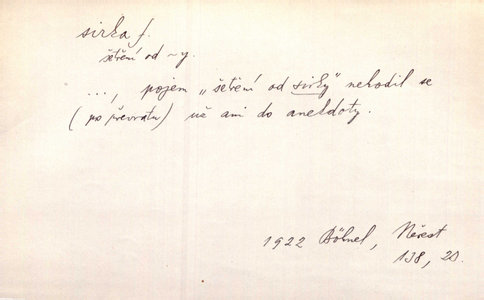 sirka f.
šetření od ~y.
..., pojem „šetření od sirky“ nehodil se
(po převratu) už ani do anekdoty.
1922 Böhnel, Neřest
138, 20.